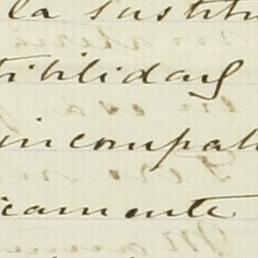 la sustitu
tibilidad
incompat
icamente